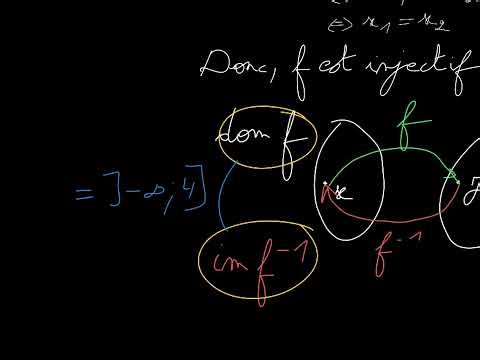 ⇔ x₁ = x₂
Donc, f est injectif
dom f
f
= ]-∞; 4]
x
im f⁻¹
f⁻¹